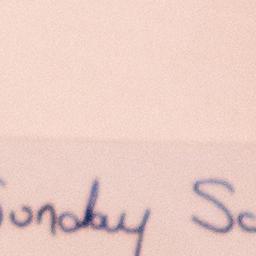 Sunday Sc